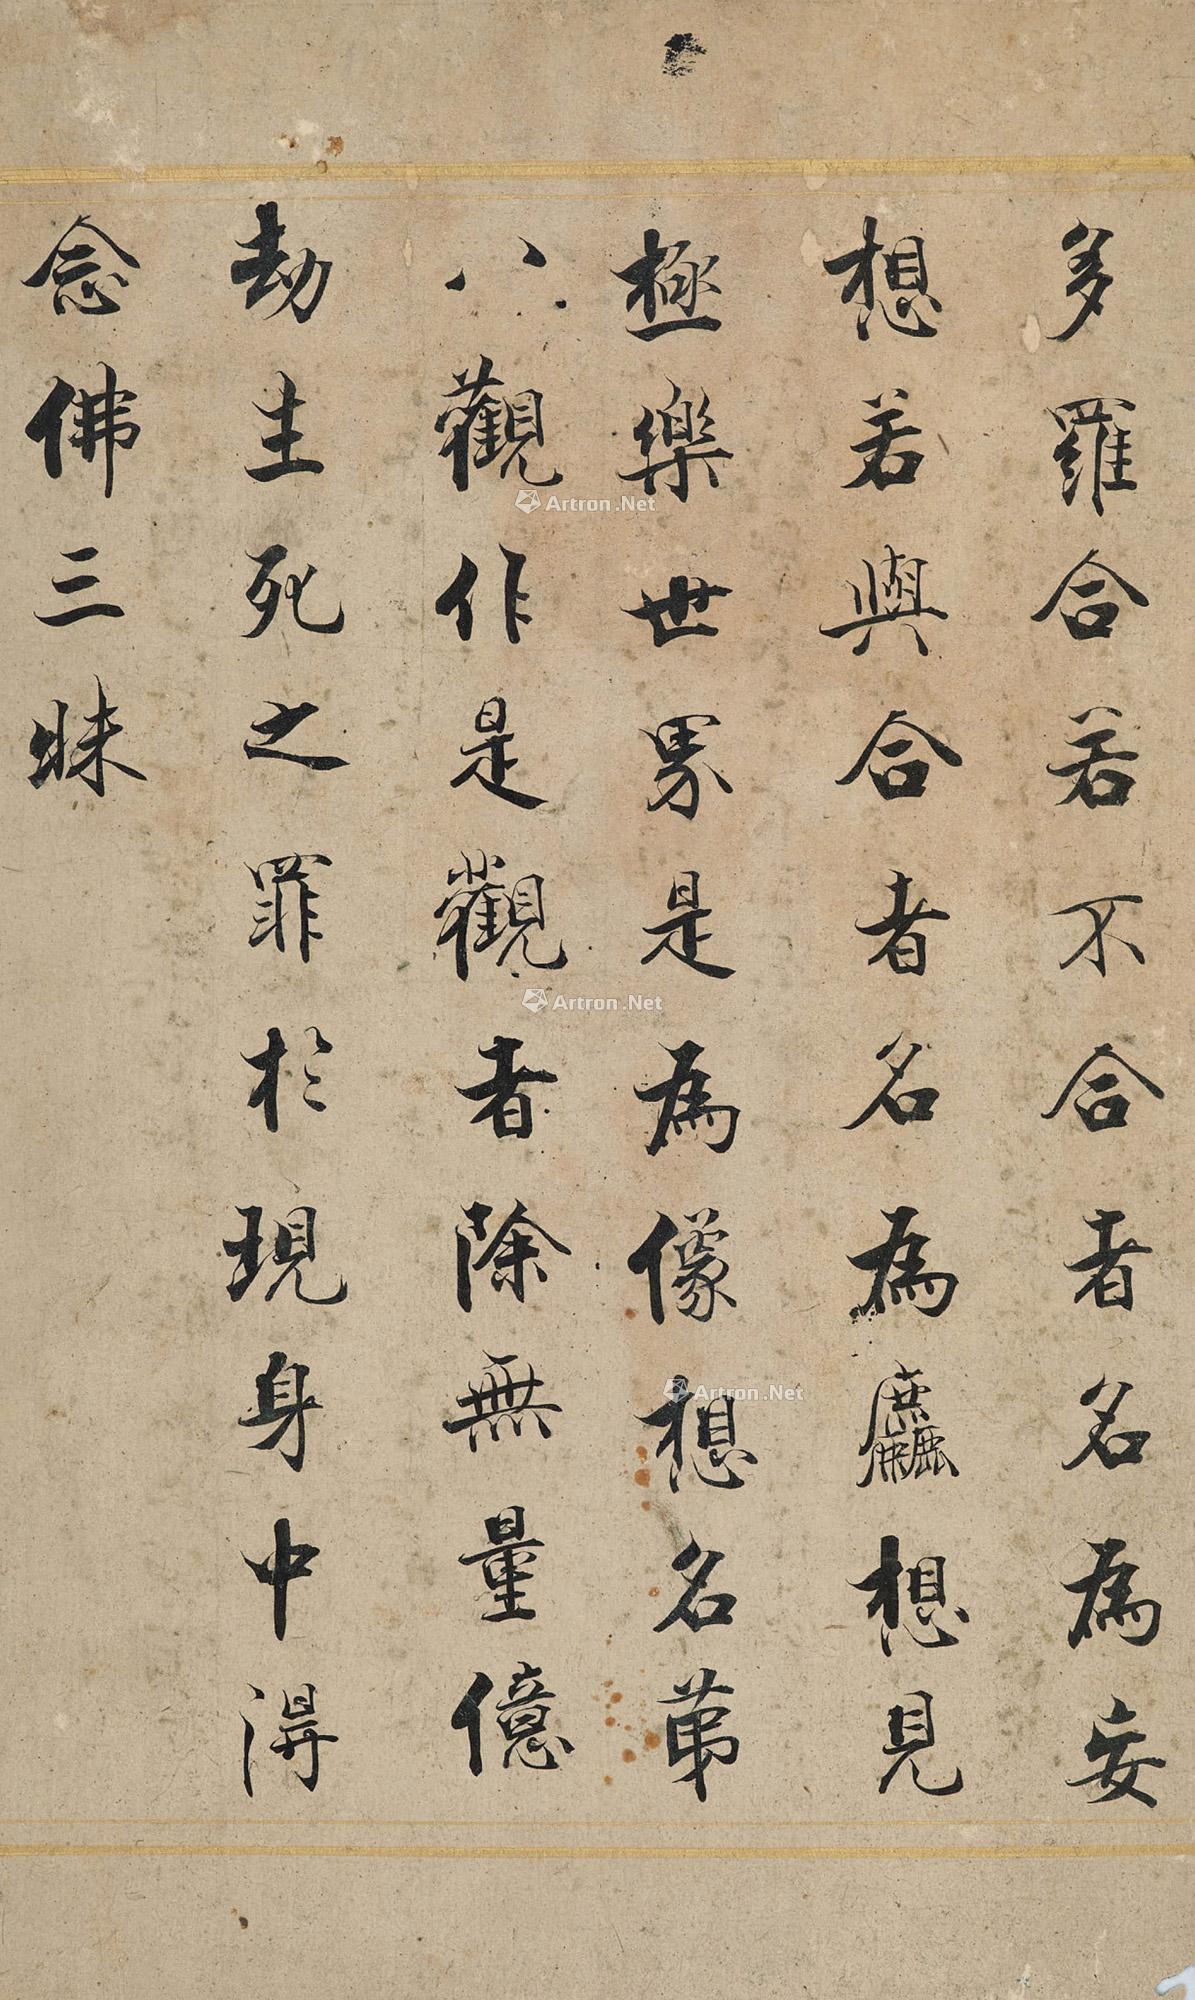 多羅合若不合者名為妄
想若與合者名為麤想見
極樂世界是為像想名苐
八觀作是觀者除無量億
劫生死之罪於現身中淂
念佛三昧
Artron.Net
Artron.Net
Artron.Net